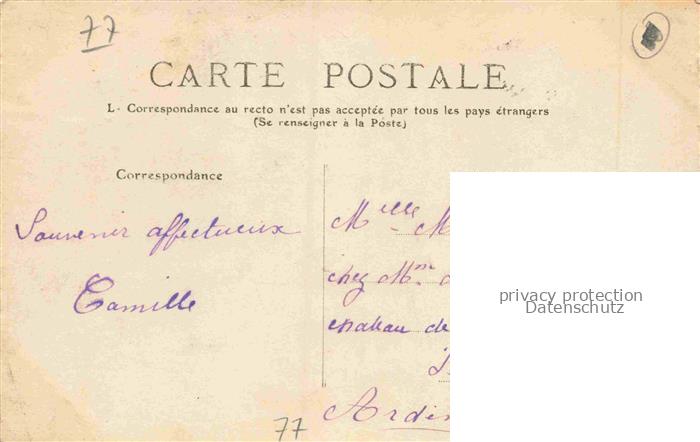 77
CARTE POSTALE
L - Correspondance au recto n'est pas acceptée par tous les pays étrangers
(Se renseigner à la Poste)
Correspondance
Souvenir affectueux
Camille
Mlle M
chez Mme
de
privacy protection
Datenschutz
77